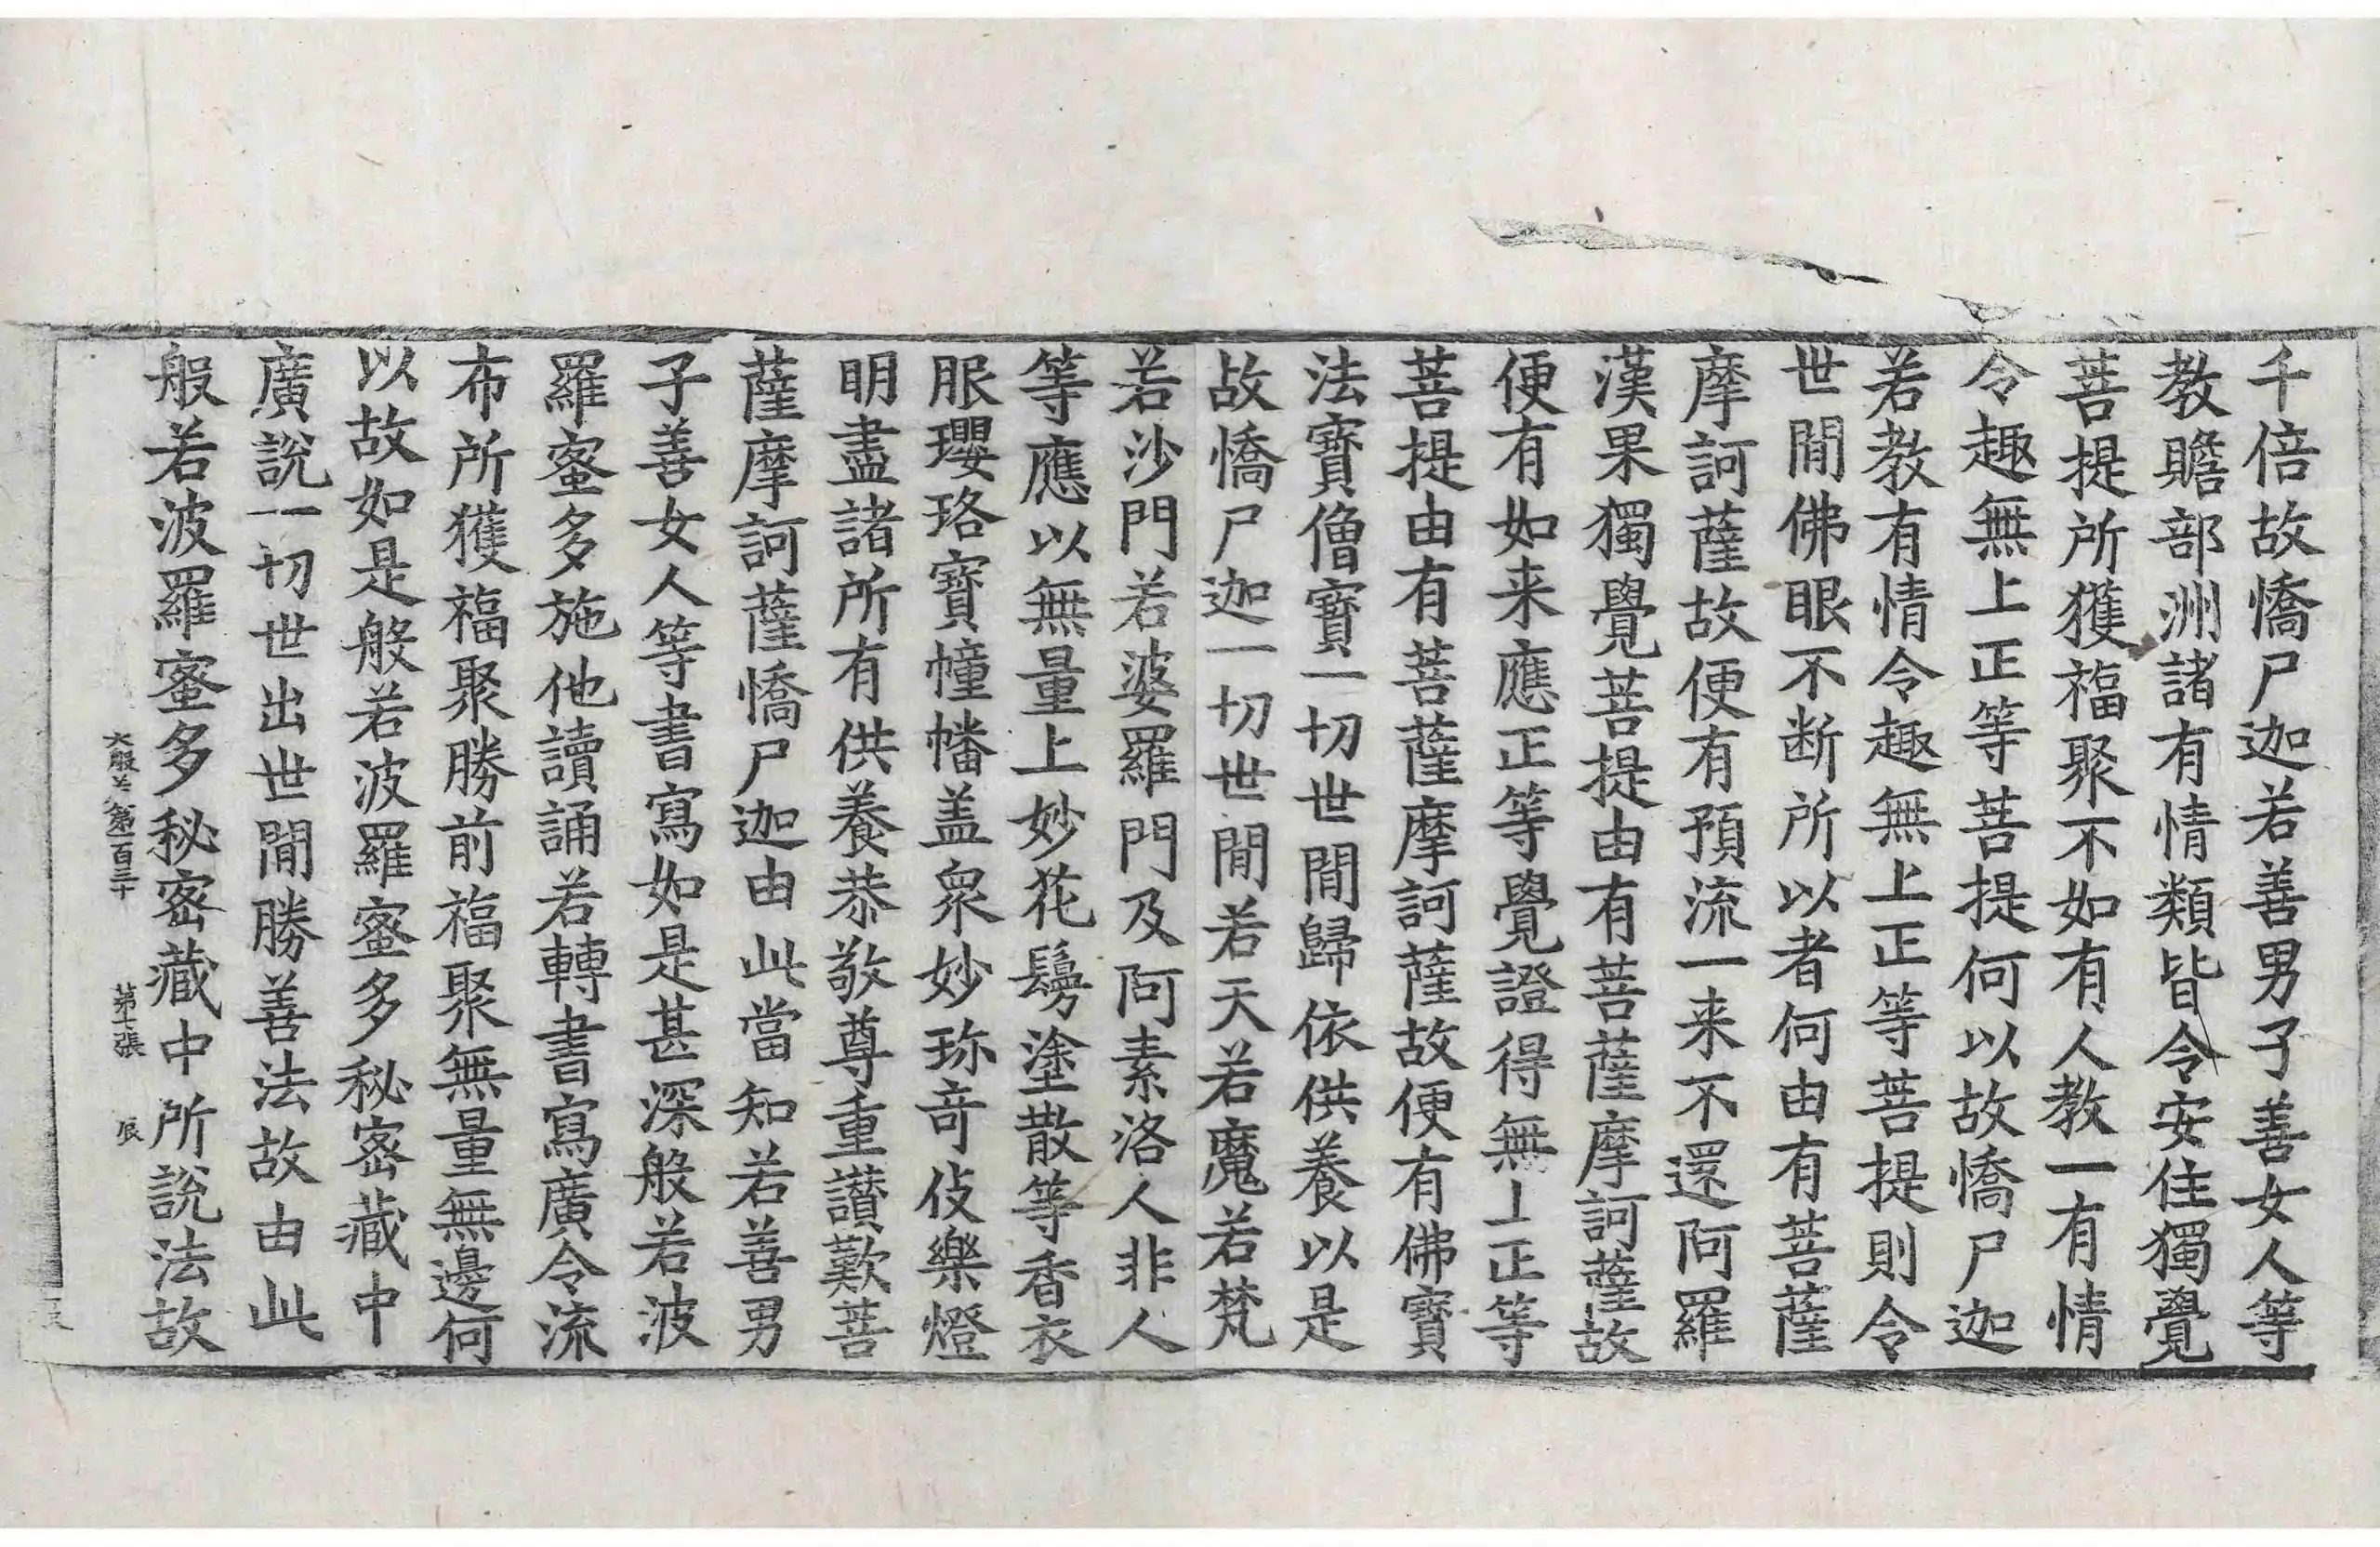 千倍故憍尸迦若善男子善女人等
教贍部洲諸有情類皆令安住獨覺
菩提所獲福聚不如有人教一有情
令趣無上正等菩提何以故憍尸迦
若教有情令趣無上正等菩提則令
世間佛眼不断所以者何由有菩薩
摩訶薩故便有預流一来不還阿羅
漢果獨覺菩提由有菩薩摩訶薩故
便有如来應正等覺證得無上正等
菩提由有菩薩摩訶薩故便有佛寶
法寶僧寶一切世間歸依供養以是
故憍尸迦一切世間若天若魔若梵
若沙門若婆羅門及阿素洛人非人
等應以無量上妙花鬘塗散等香衣
服瓔珞寶幢幡盖衆妙珎竒伎樂燈
明盡諸所有供養恭敬尊重讚歎菩
薩摩訶薩憍尸迦由此當知若善男
子善女人等書寫如是甚深般若波
羅蜜多施他讀誦若轉書寫廣令流
布所獲福聚勝前福聚無量無邊何
以故如是般若波羅蜜多秘密藏中
廣說一切世出世間勝善法故由此
般若波羅蜜多秘密藏中所說法故
大般若第一百三十 第七張 辰